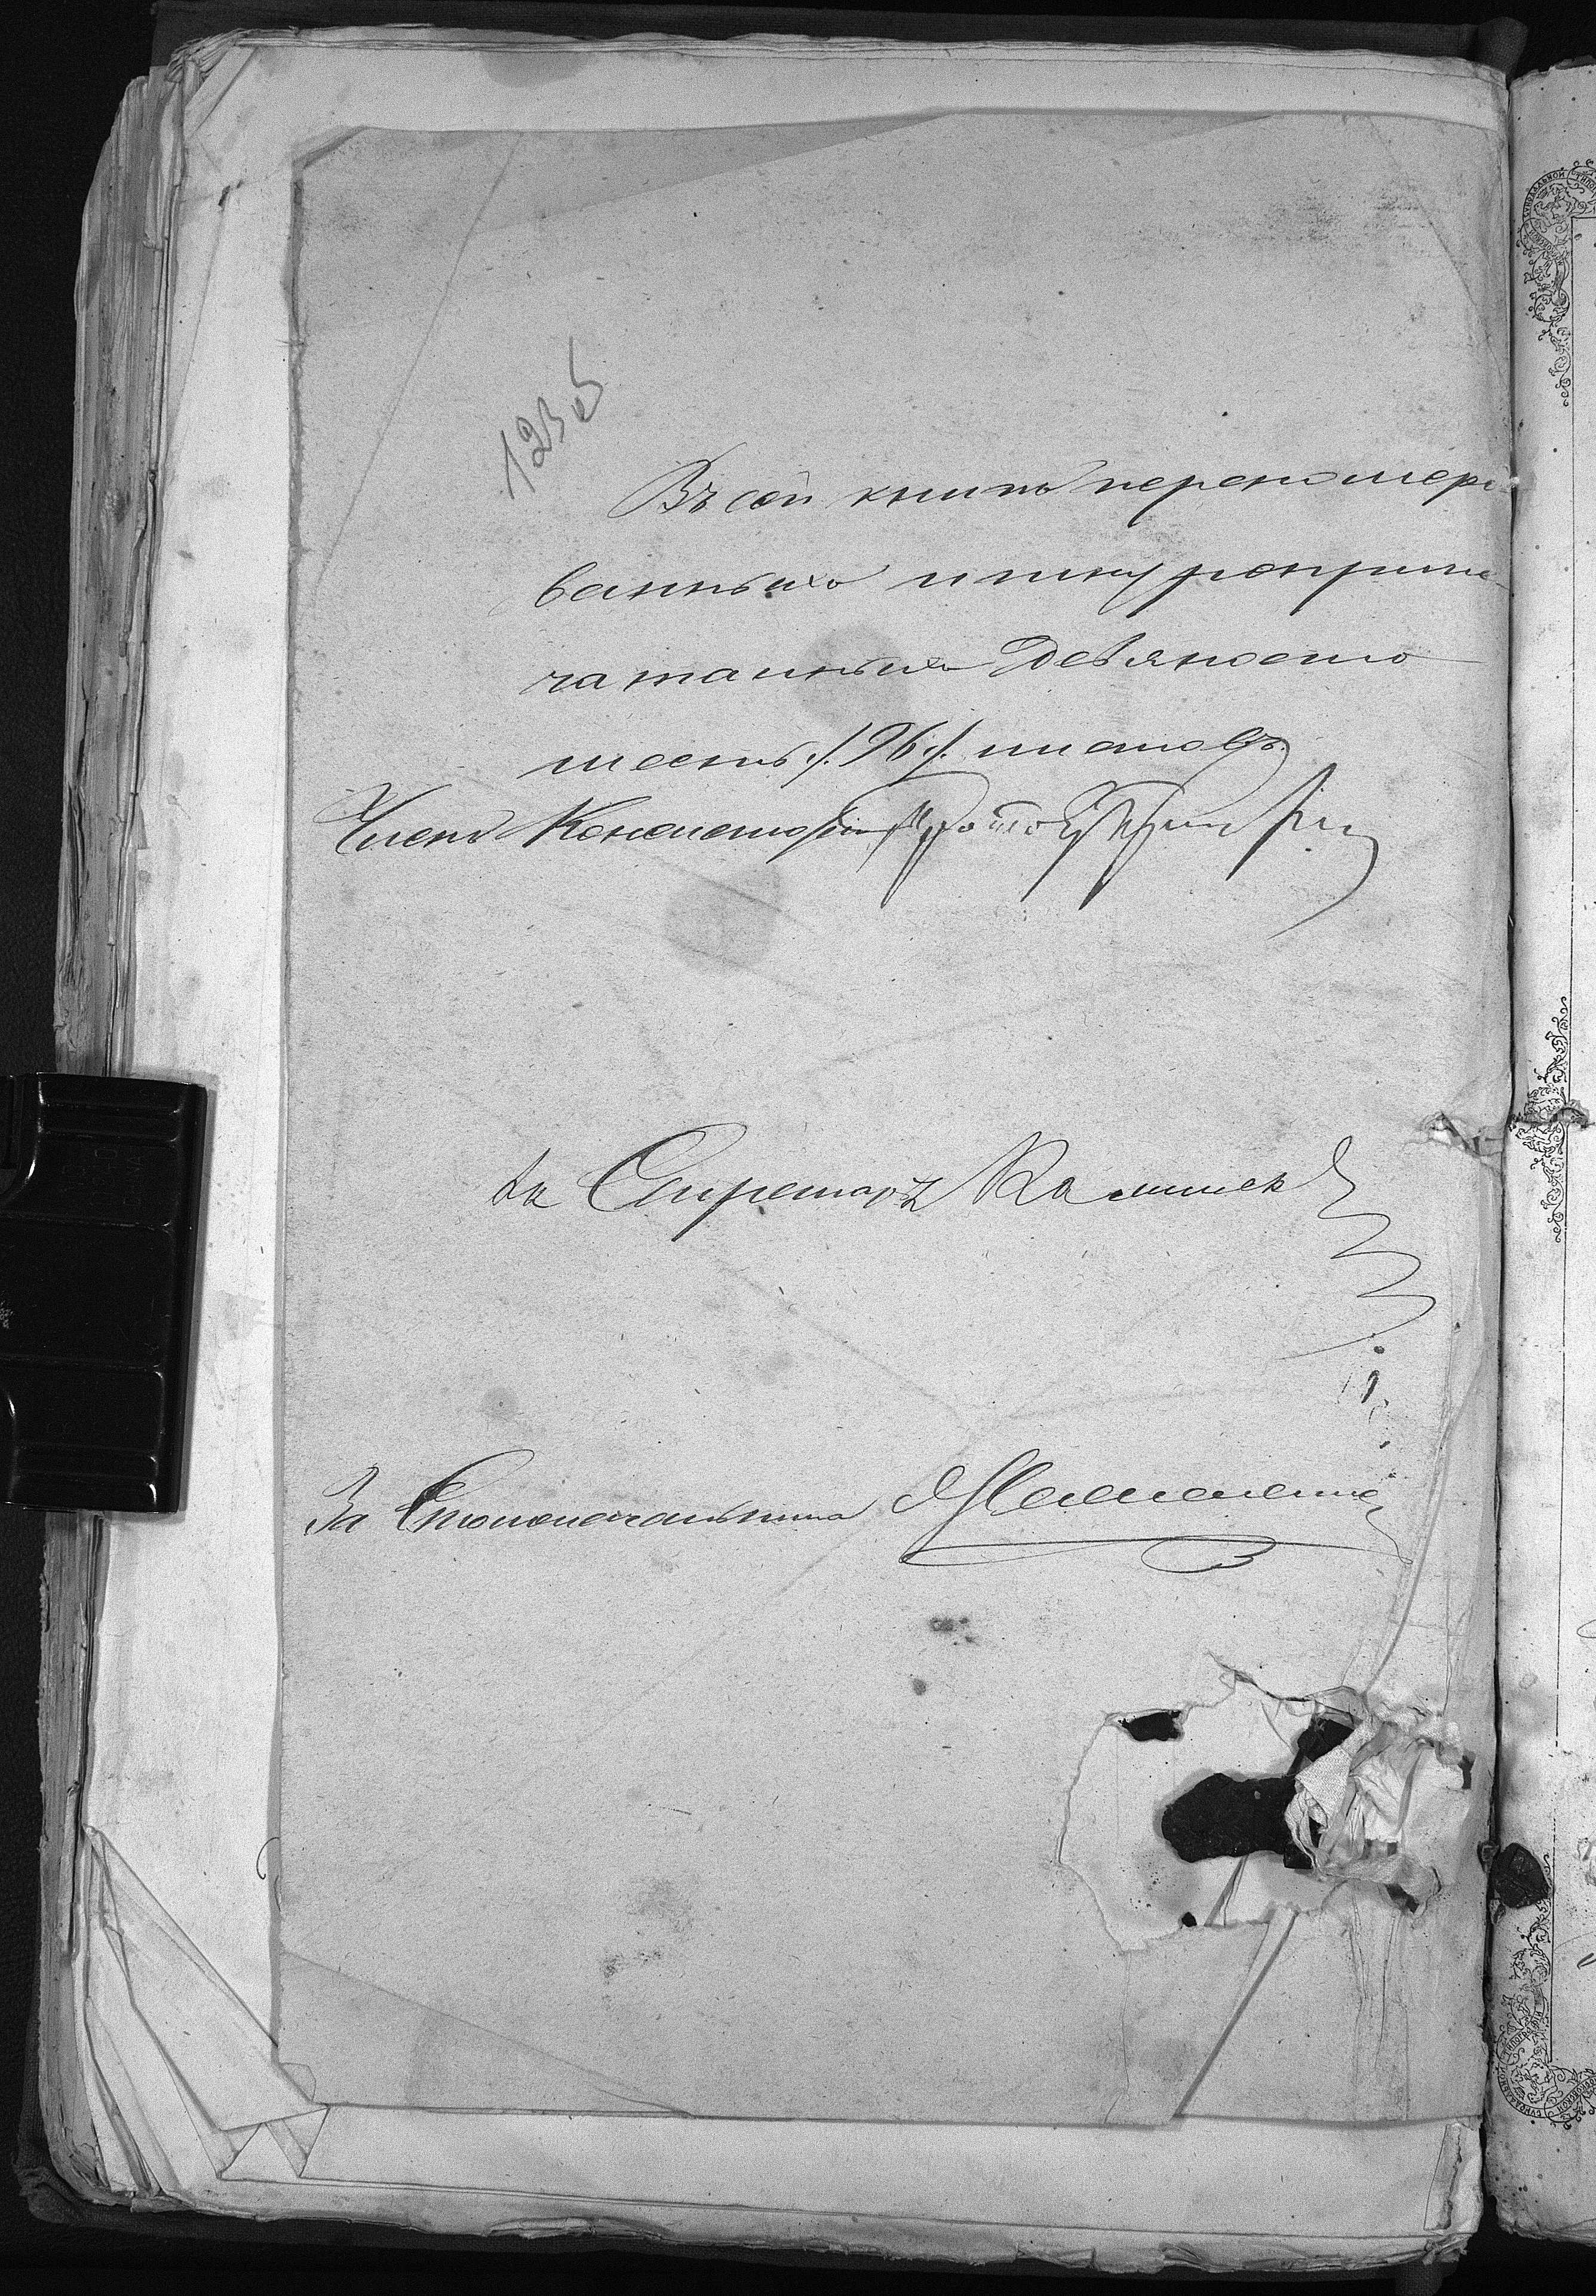 1235
Въ сей книгѣ перенумеро-
ванныхъ и шнуроприпе-
чатанныхъ Девяносто
шесть /. 96 /. листовъ.
Членъ Консисторіи Прото
Секретарь
За Столоначальника